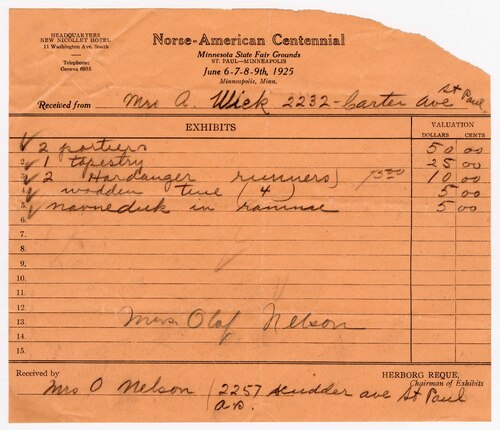 HEADQUARTERS
NEW NICOLLET HOTEL
11 Washington Ave. South
Telephone:
Geneva 6935
Norse-American Centennial
Minnesota State Fair Grounds
ST. PAUL—MINNEAPOLIS
June 6-7-8-9th, 1925
Minneapolis, Minn.
Received from Mrs A. Wick 2232- Carter ave St Paul
EXHIBITS VALUATION
DOLLARS CENTS
1. 2 portiers 50 00
2. 1 tapestry 25 00
3. 2 Hardanger runners) 75 00 10 00
4. wodden tine (4) 5 00
5. navneduk in ramme 5 00
6.
7.
8.
9.
10.
11.
12.
13. Mrs. Olaf Nelson
14.
15.
Received by HERBORG REQUE,
Chairman of Exhibits
Mrs O Nelson (2257 scudder ave St Paul